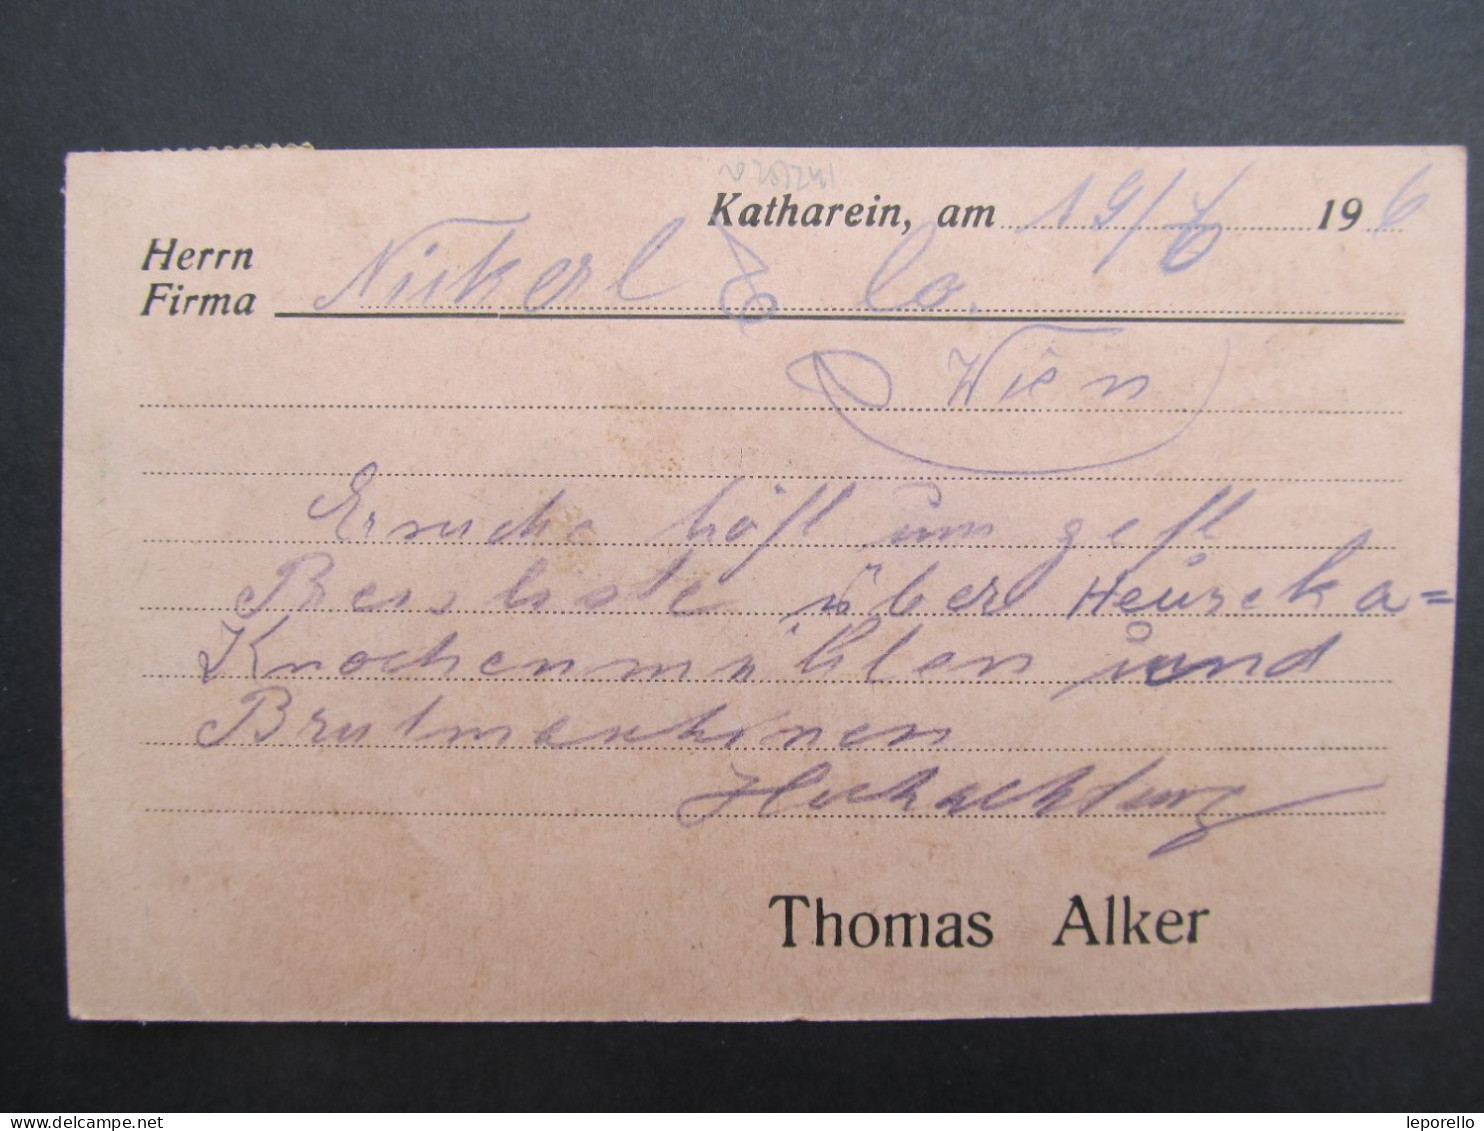 Katharein, am 19/6 19 6
Herrn
Firma Nickerl & Co.
Wien
Ersuche höfl um gefl
Preisliste über Heureka=
Knochenmühlen und
Brutmaschinen
Hochachtung
Thomas Alker
leporello